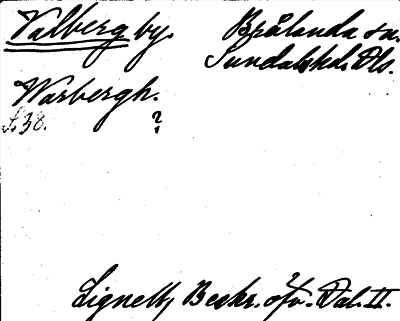 Valberg by. Brålanda sn.
Sundals hd. Dls.
Warbergh.
S. 38. ?
Lignell, Beskr. öfv. Dal. II.